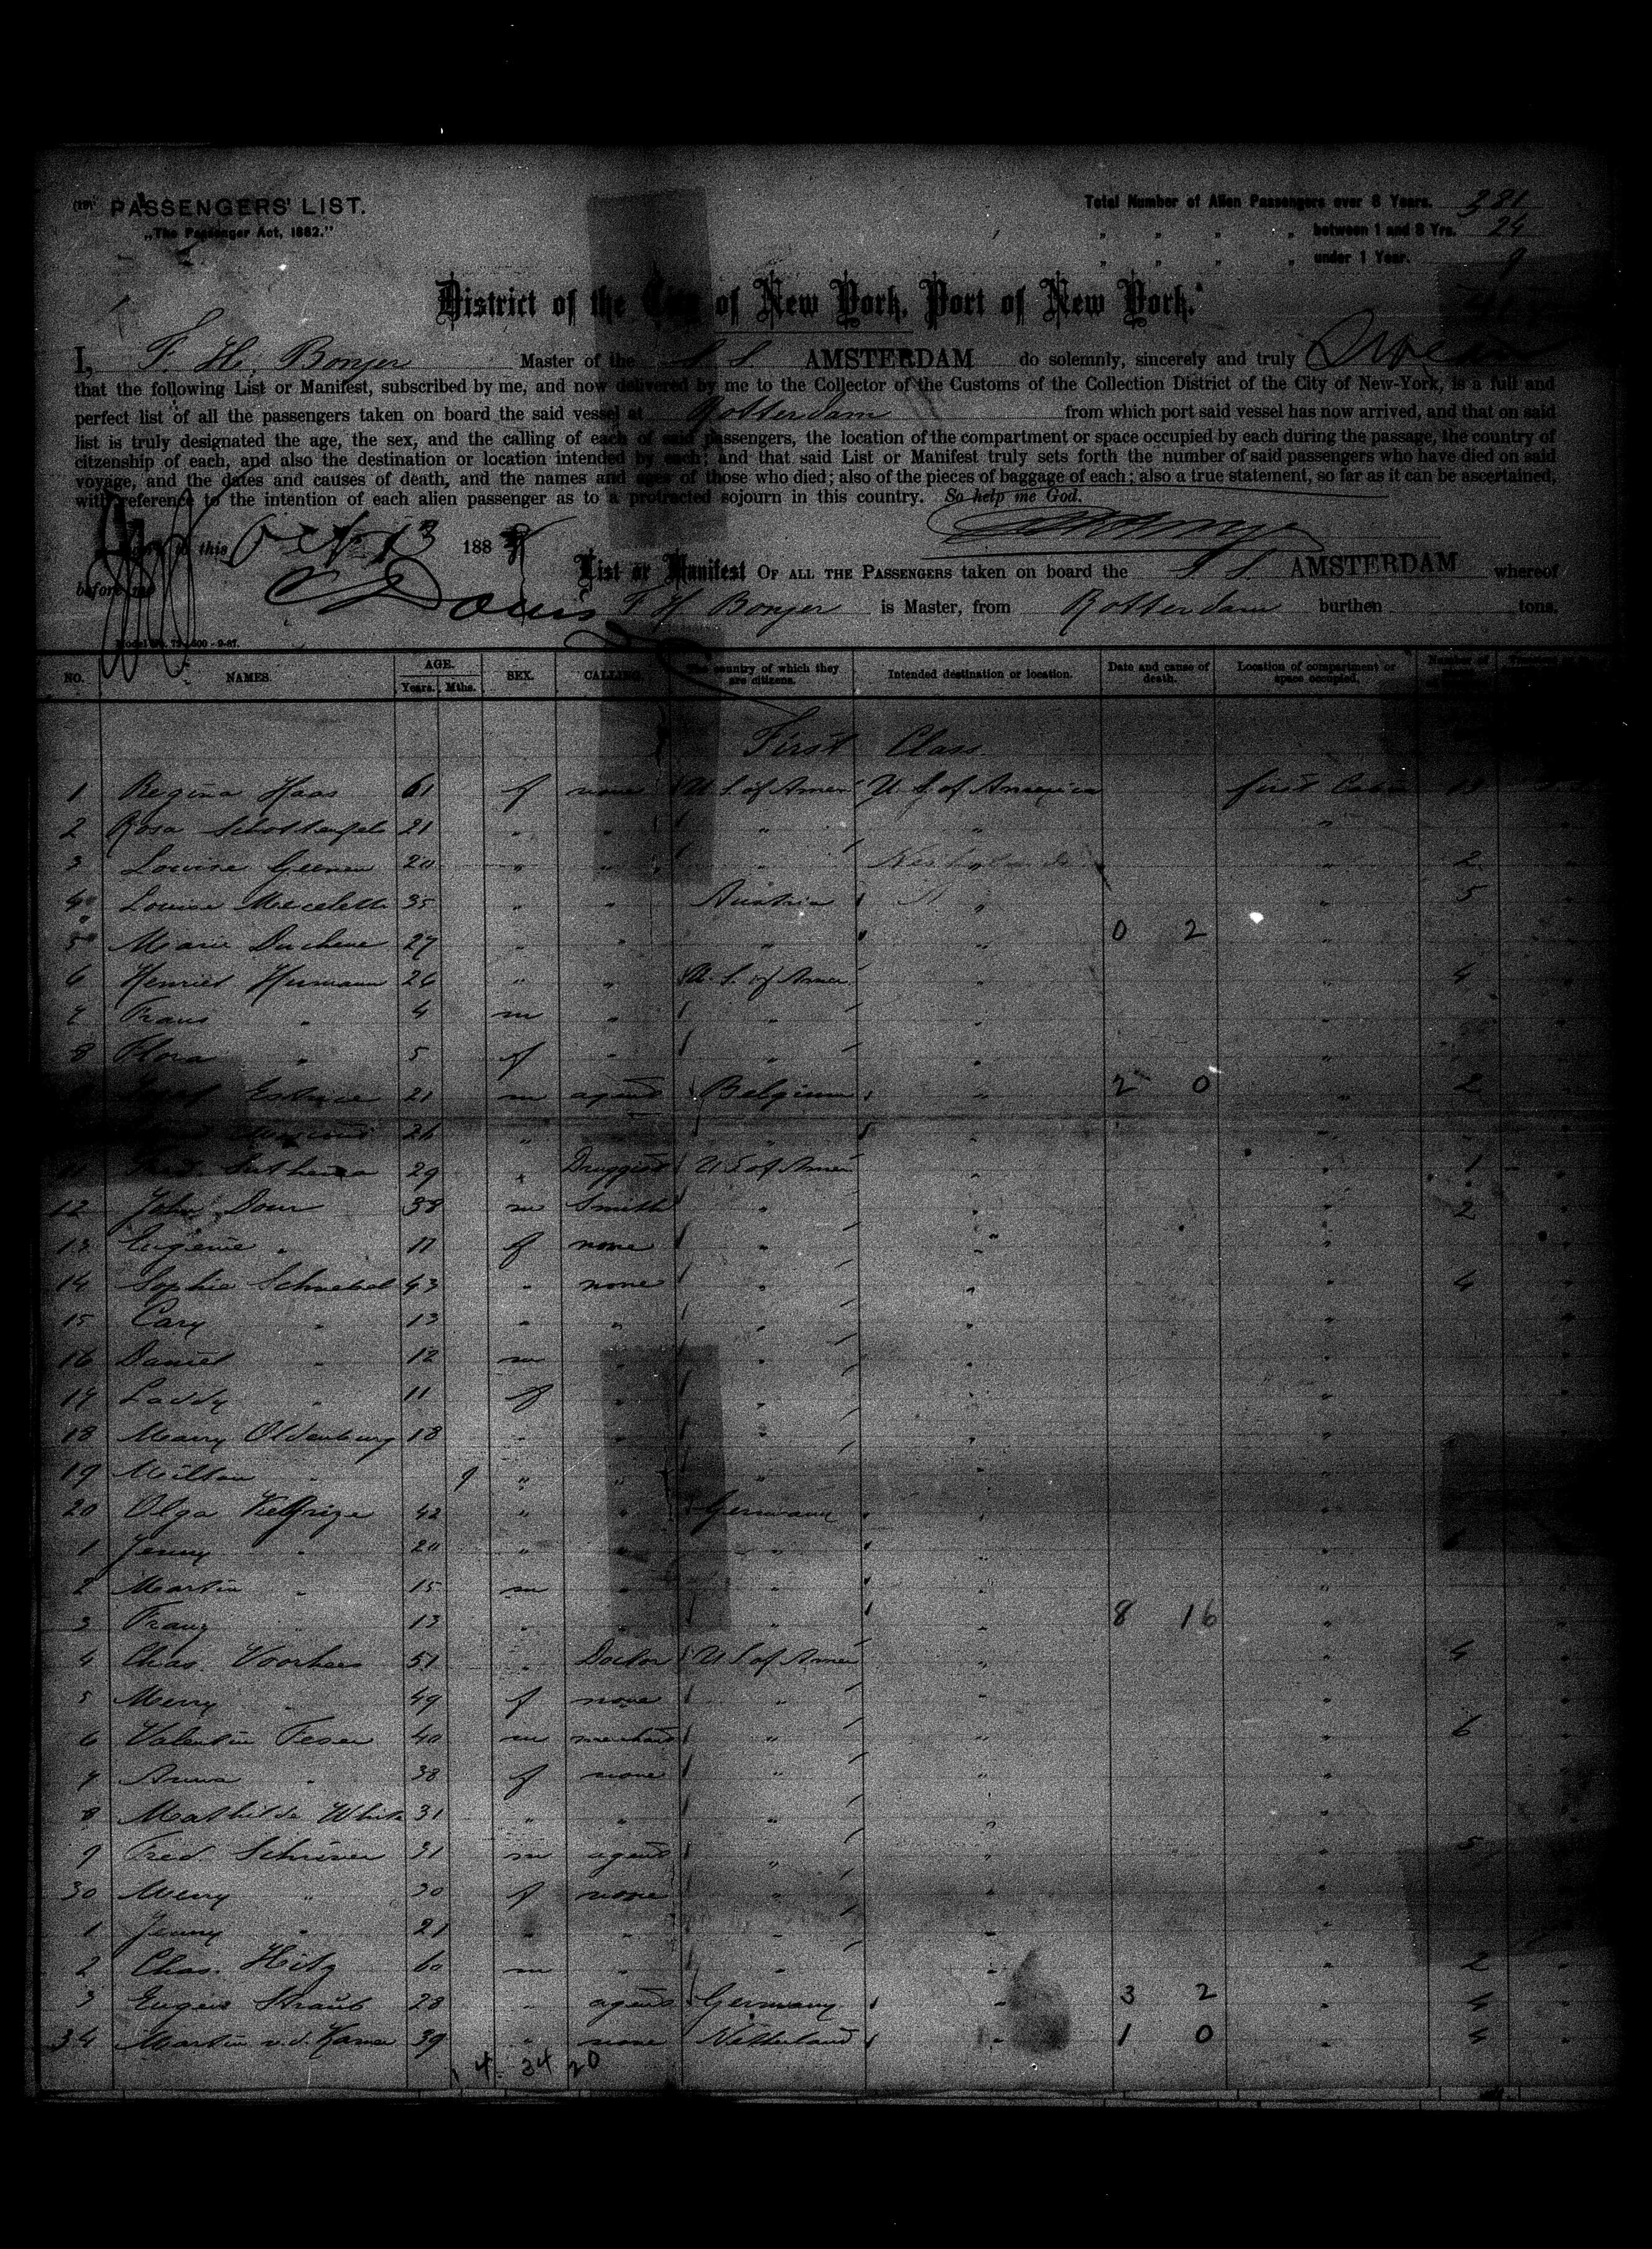 PASSENGERS' LIST.
„The Passenger Act, 1882."
Total Number of Alien Passengers over 8 Years. 381
„ „ „ „ between 1 and 8 Yrs. 24
„ „ „ „ under 1 Year. 9
District of the City of New York, Port of New York.
I, F. H. Bonjer Master of the S S AMSTERDAM do solemnly, sincerely and truly Swear
that the following List or Manifest, subscribed by me, and now delivered by me to the Collector of the Customs of the Collection District of the City of New-York, is a full and
perfect list of all the passengers taken on board the said vessel at Rotterdam from which port said vessel has now arrived, and that on said
list is truly designated the age, the sex, and the calling of each of said passengers, the location of the compartment or space occupied by each during the passage, the country of
citzenship of each, and also the destination or location intended by each; and that said List or Manifest truly sets forth the number of said passengers who have died on said
voyage, and the dates and causes of death, and the names and ages of those who died; also of the pieces of baggage of each; also a true statement, so far as it can be ascertained,
with reference to the intention of each alien passenger as to a protracted sojourn in this country. So help me God.
to this Oct 13 188
before me
List or Manifest OF ALL THE PASSENGERS taken on board the S S. AMSTERDAM whereof
F H Bonjer is Master, from Rotterdam burthen tons.
NO. NAMES. AGE. Years. Mths. SEX. CALLING. The country of which they are citizens. Intended destination or location. Date and cause of death. Location of compartment or space occupied. Number of
First Class
1 Regina Haas 61 f none U S. of Amer U S. of America first Cabin
2 Rosa 21 " " " " "
3 Louise 20 " " " " 2
4 Louise 35 " " Austria " " 5
5 Marie Duchene 27 " " " " 0 2 "
6 Henriet Hermann 26 " " U. S. of Amer. " " 4
7 Frans " 4 m " " " "
8 Flora " 5 f " " " "
21 m agent Belgium " 2 0 " 2
26 " " "
11 Fred. 29 " Druggist U S of Amer " " 1
12 John Dour 38 m Smith " " " 2
13 Eugenie " 17 f none " " "
14 Sophie Schnebel 43 " none " " " 4
15 Cary " 13 " " " " "
16 Daniel " 12 m " " " "
17 Laddy " 11 f " " " "
18 Meary Oldenburg 18 " " " " "
19 Milton " 9 " " " "
20 Olga 42 " " Germany " "
1 Jenny " 20 " " " " "
2 Martin " 15 m " " " "
3 Franz " 13 " " " " 8 16 "
4 Chas. Voorhees 51 " Doctor U S of Amer " " 4
5 Merry " 49 f none " " "
6 Valentin Feser 40 m merchant " " " 6
7 Anna " 38 f none " " "
8 Mathilde White 31 " " " " "
9 Fred. Schriver 31 m agent " " " 5
30 Merry " 30 f none " " "
1 Jenny " 21 " " " " "
2 Chas. Hitz 60 m " " " " 2
3 Eugene Straub 28 " agent Germany " 3 2 " 4
34 Martin v. d. 39 " none Netherland " 1 0 " 4
4 34 20